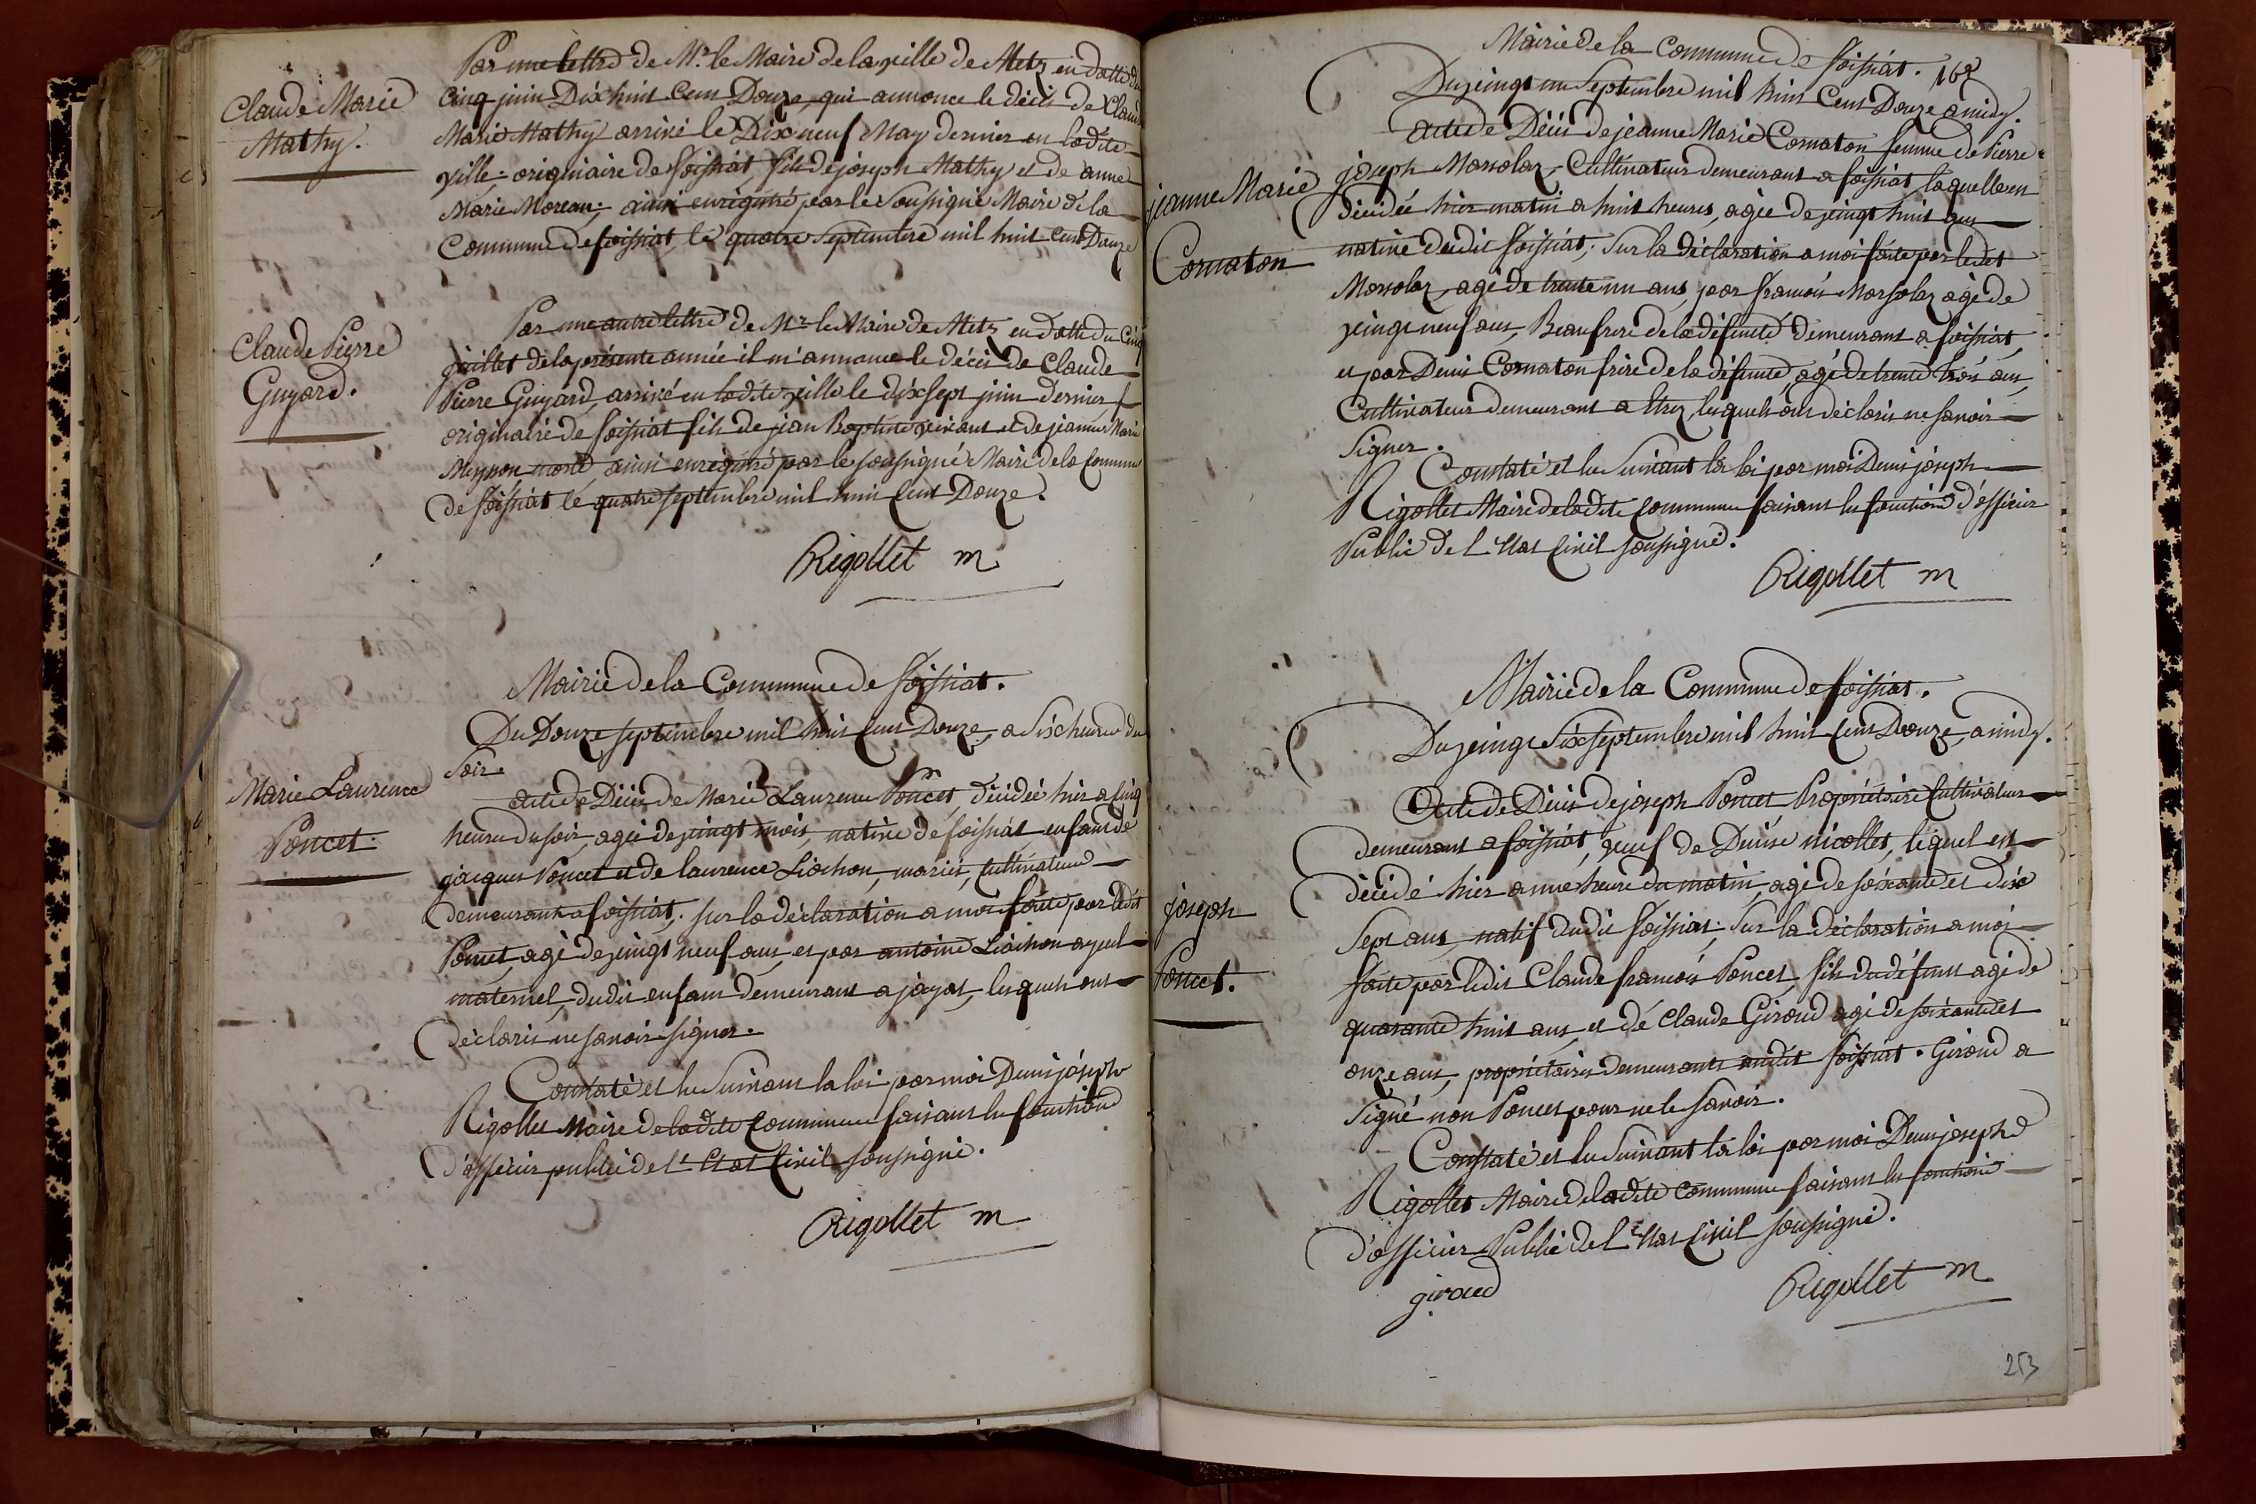 Claude Marie
Mathy.
Par une lettre de Mr. le Maire de la ville de Metz en datte du
cinq juin Dix huit Cent Douze, qui annonce le décès de Claude
Marie Mathy arrivé le Dix neuf May dernier en ladite
ville: originaire de foissiat, fils de joseph Mathy et de anne
Marie Moreau; ainsi enrégistré par le Soussigné Maire de la
Commune de foissiat, le quatre Septembre mil huit cent Douze
Claude Pierre
Guyard.
Par une autre lettre de Mr. le Maire de Metz en datte du Cinq
juillet de la présente année il m'annonce le décès de Claude
Pierre Guyard, arrivé en ladite ville le dix sept juin dernier
originaire de foissiat fils de jean Baptiste vivant et de jeanne Marie
morte, ainsi enrégistré par le soussigné Maire de la Commune
de foissiat le quatre septembre mil huit Cent Douze.
Rigollet m
Mairie de la Commune de foissiat.
Du Douze septembre mil huit Cent Douze, a Six heures du
soir
Marie Laurence
Poncet.
acte de Décès de Marie Laurence Poncet, décédée hier a Cinq
heures du soir, agée de vingt mois, native de foissiat enfant de
jacques Poncet et de laurence Liochon, mariés, Cultivateurs
demeurant a foissiat; sur la déclaration a moi faite par ledit
Poncet, agé de vingt neuf ans, et par antoine Liochon ayeul
maternel, dudit enfant demeurant a jayat, lesquels ont
déclaré ne savoir signer.
Constaté et lu Suivant la loi par moi Denis joseph
Rigollet Maire de ladite Commune faisant les fonctions
d'officier public de l'Etat Civil soussigné.
Rigollet m
Mairie de la Commune de foissiat.
162
Du vingt un Septembre mil huit Cent Douze a midy.
jeanne Marie
Cornaton
acte de Décès de jeanne Marie Cornaton femme de Pierre
joseph Marsolaz, Cultivateur demeurant a foissiat, laquelle est
décédée hier matin a huit heures, agée de vingt huit ans
native dudit foissiat; Sur la déclaration a moi faite par ledit
Marsolaz, agé de trente un ans, par francois Marsolaz agé de
vingt neuf ans, Beaufrere de la défunte demeurant a foissiat,
et par Denis Cornaton frère de la défunte, agé de trente trois ans,
Cultivateur demeurant a Etrez, lesquels ont déclaré ne savoir
Signer.
Constaté et lu Suivant la loi par moi Denis joseph
Rigollet Maire de ladite Commune faisant les fonctions d'officier
Public de l'Etat Civil soussigné.
Rigollet m
Mairie de la Commune de foissiat.
Du vingt Six septembre mil huit Cent Douze, a midy.
joseph
Poncet.
Acte de Décès de joseph Poncet Propriétaire Cultivateur
demeurant a foissiat, veuf de Denise nicollet, lequel est
décédé hier a une heure du matin, agé de soixante et dix
Sept ans, natif dudit foissiat; Sur la déclaration a moi
faite par ledit Claude francois Poncet, fils du défunt agé de
quarante huit ans, et de Claude Giroud agé de soixante et
onze ans, propriétaires demeurants audit foissiat. Giroud a
Signé non Poncet pour ne le savoir.
Constaté et lu Suivant la loi par moi Denis joseph
Rigollet Maire de ladite Commune faisant les fonctions
d'officier Public de l'Etat Civil soussigné.
giroud
Rigollet m
253